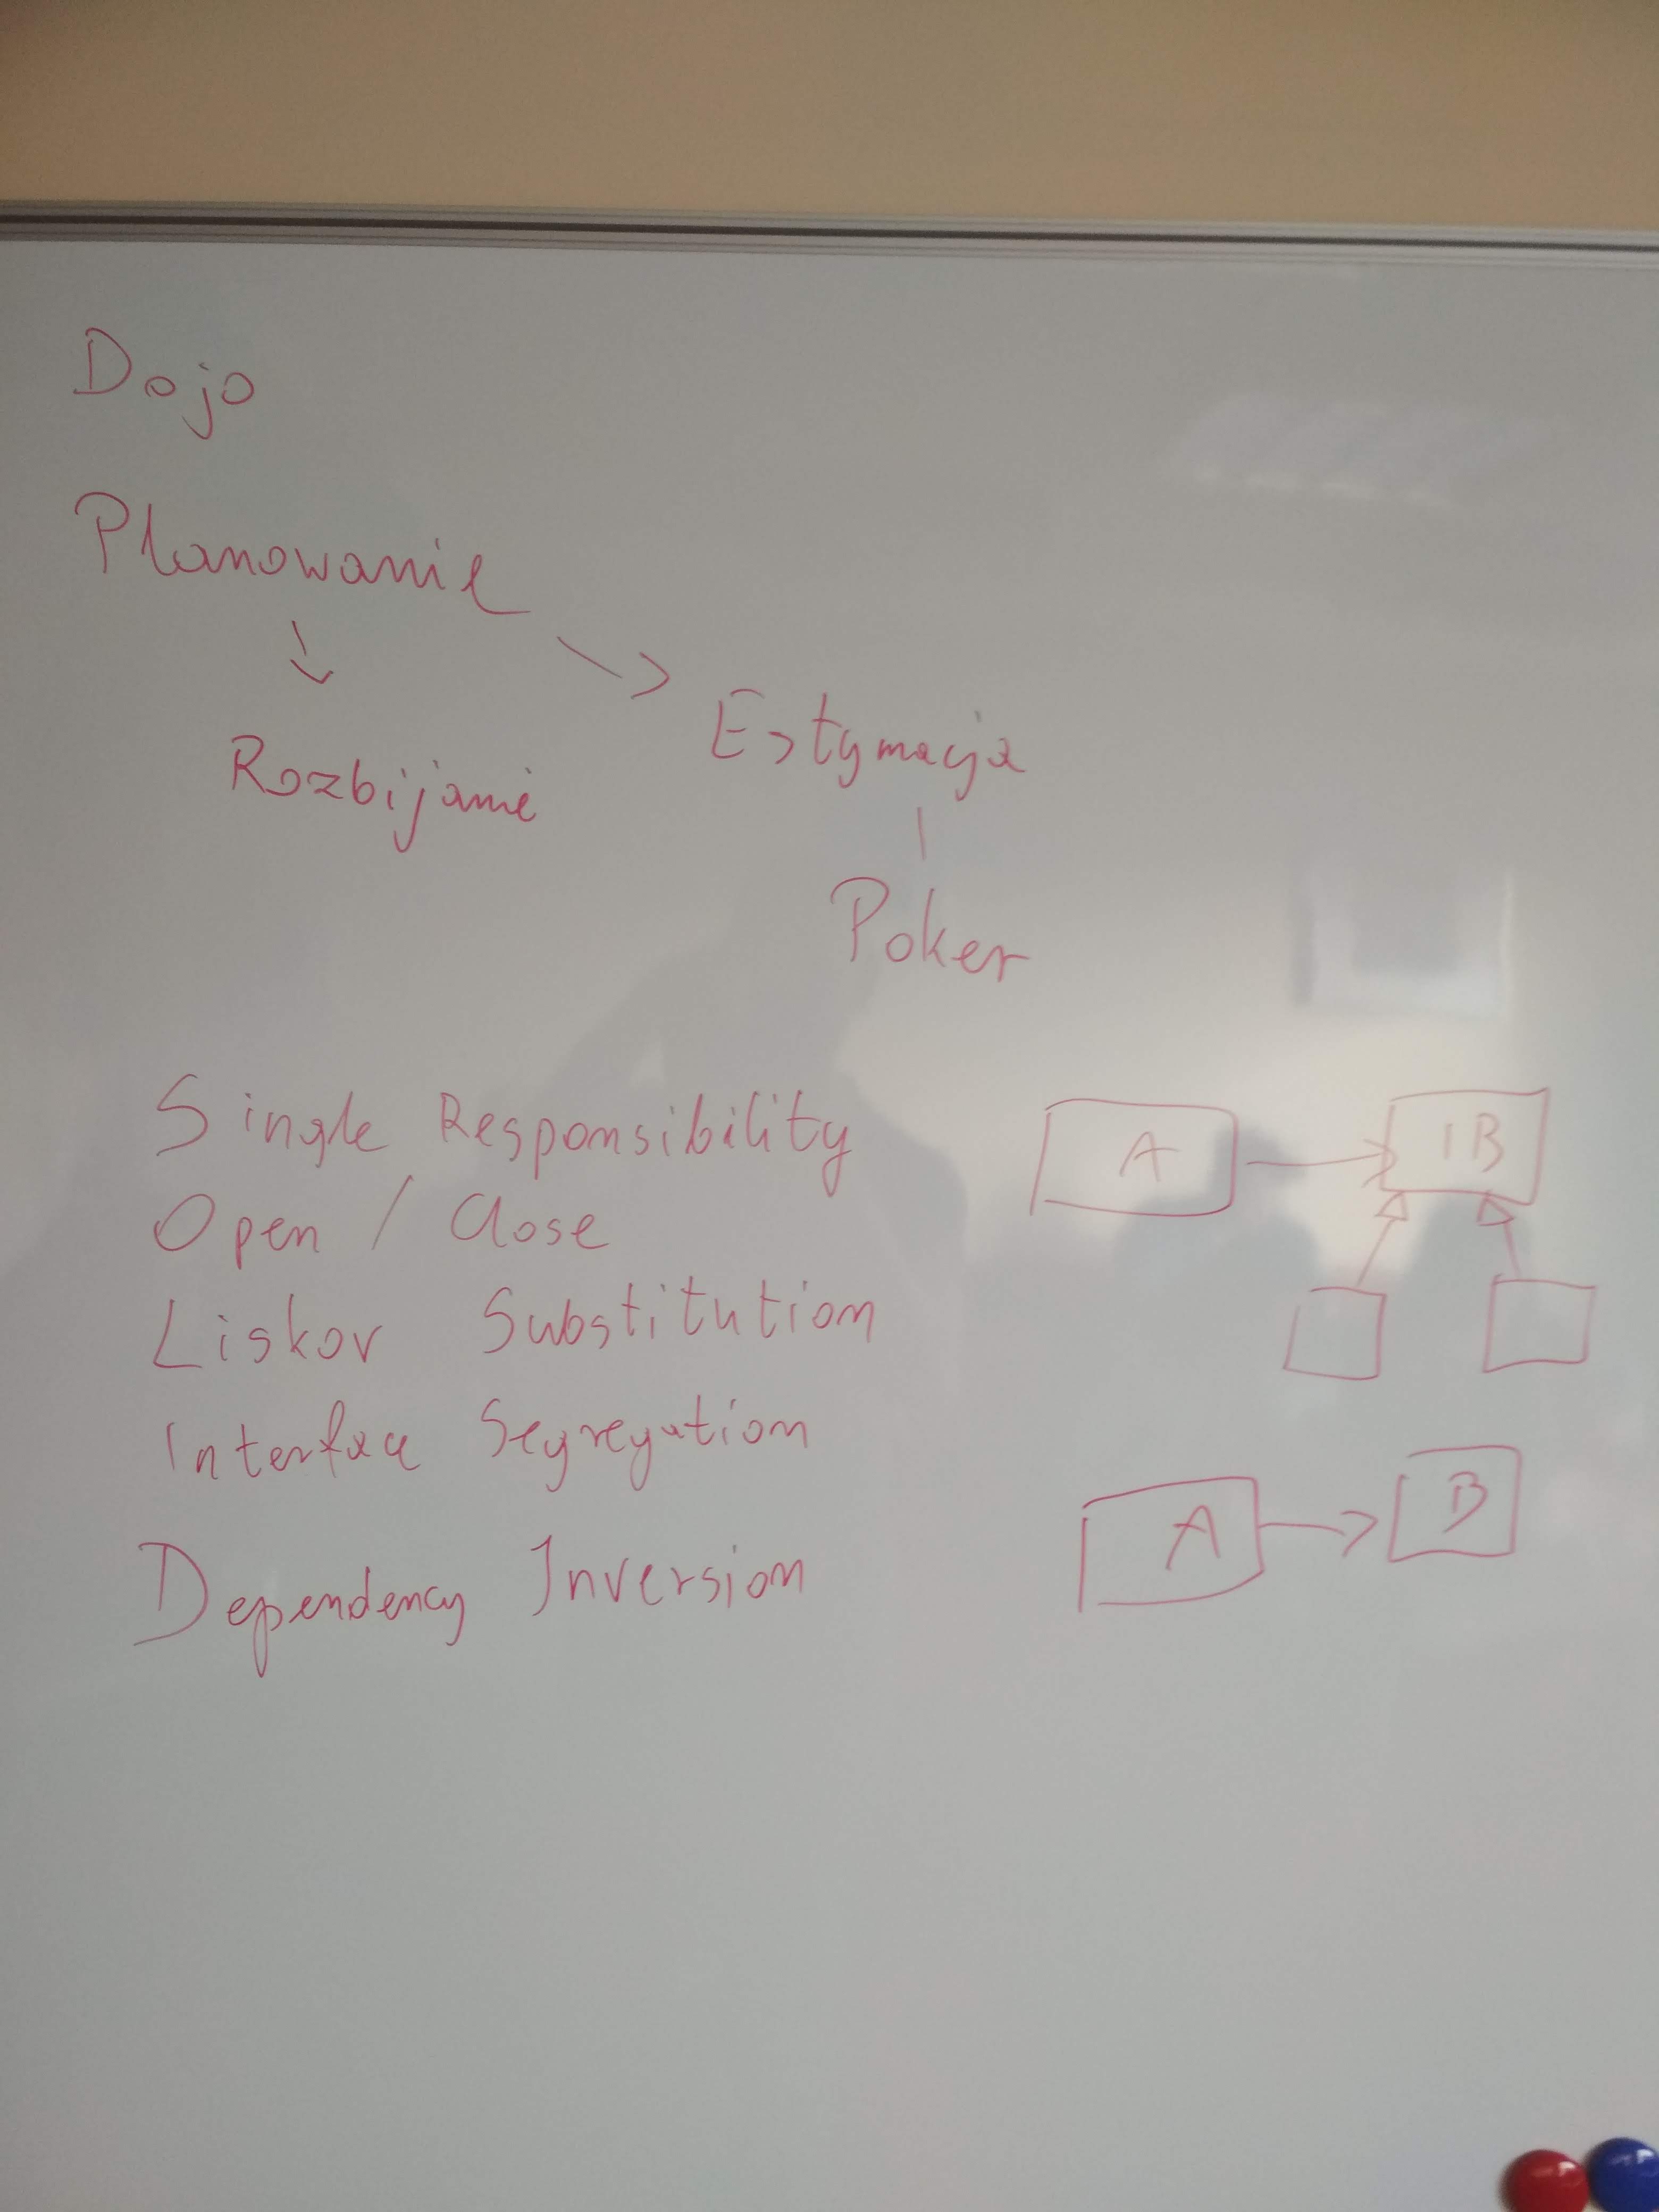 Dojo
Planowanie
Rozbijanie
Estymacja
Poker
Single Responsibility
Open / Close
Liskov Substitution
Interface Segregation
Dependency Inversion
A
IB
A
B